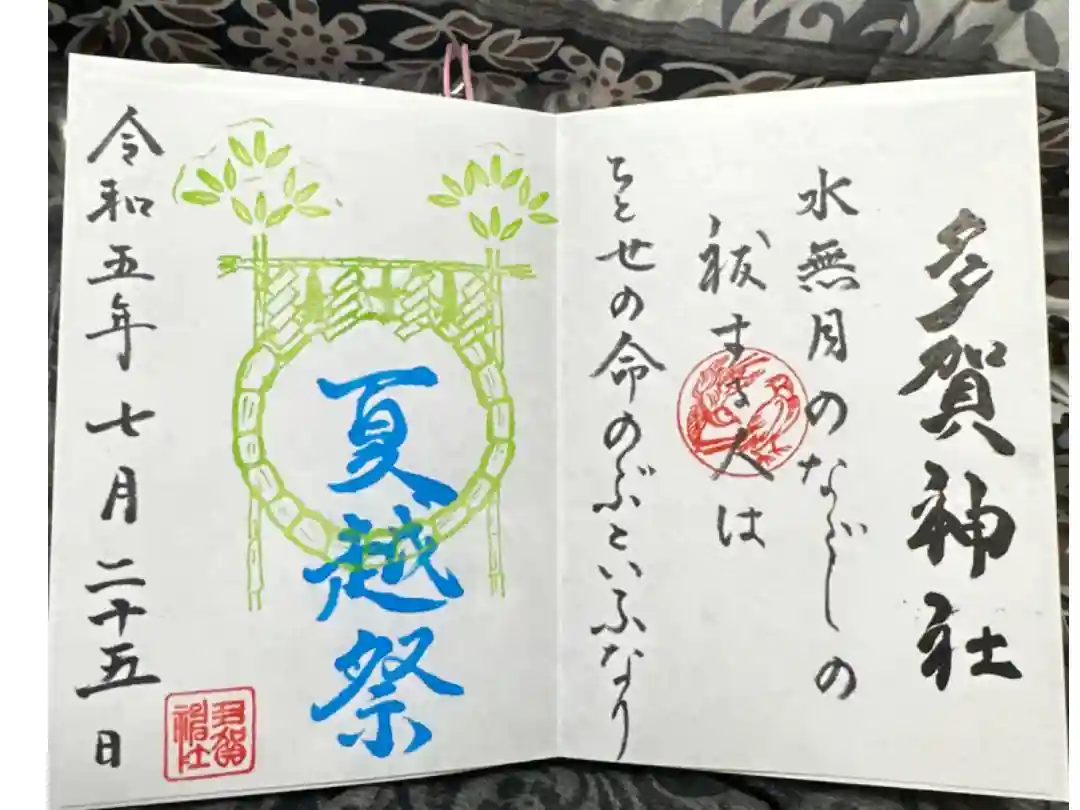 多賀神社
水無月のなごしの
祓する人は
ちとせの命のぶといふなり
夏越祭
令和五年七月二十五日
多賀
神社